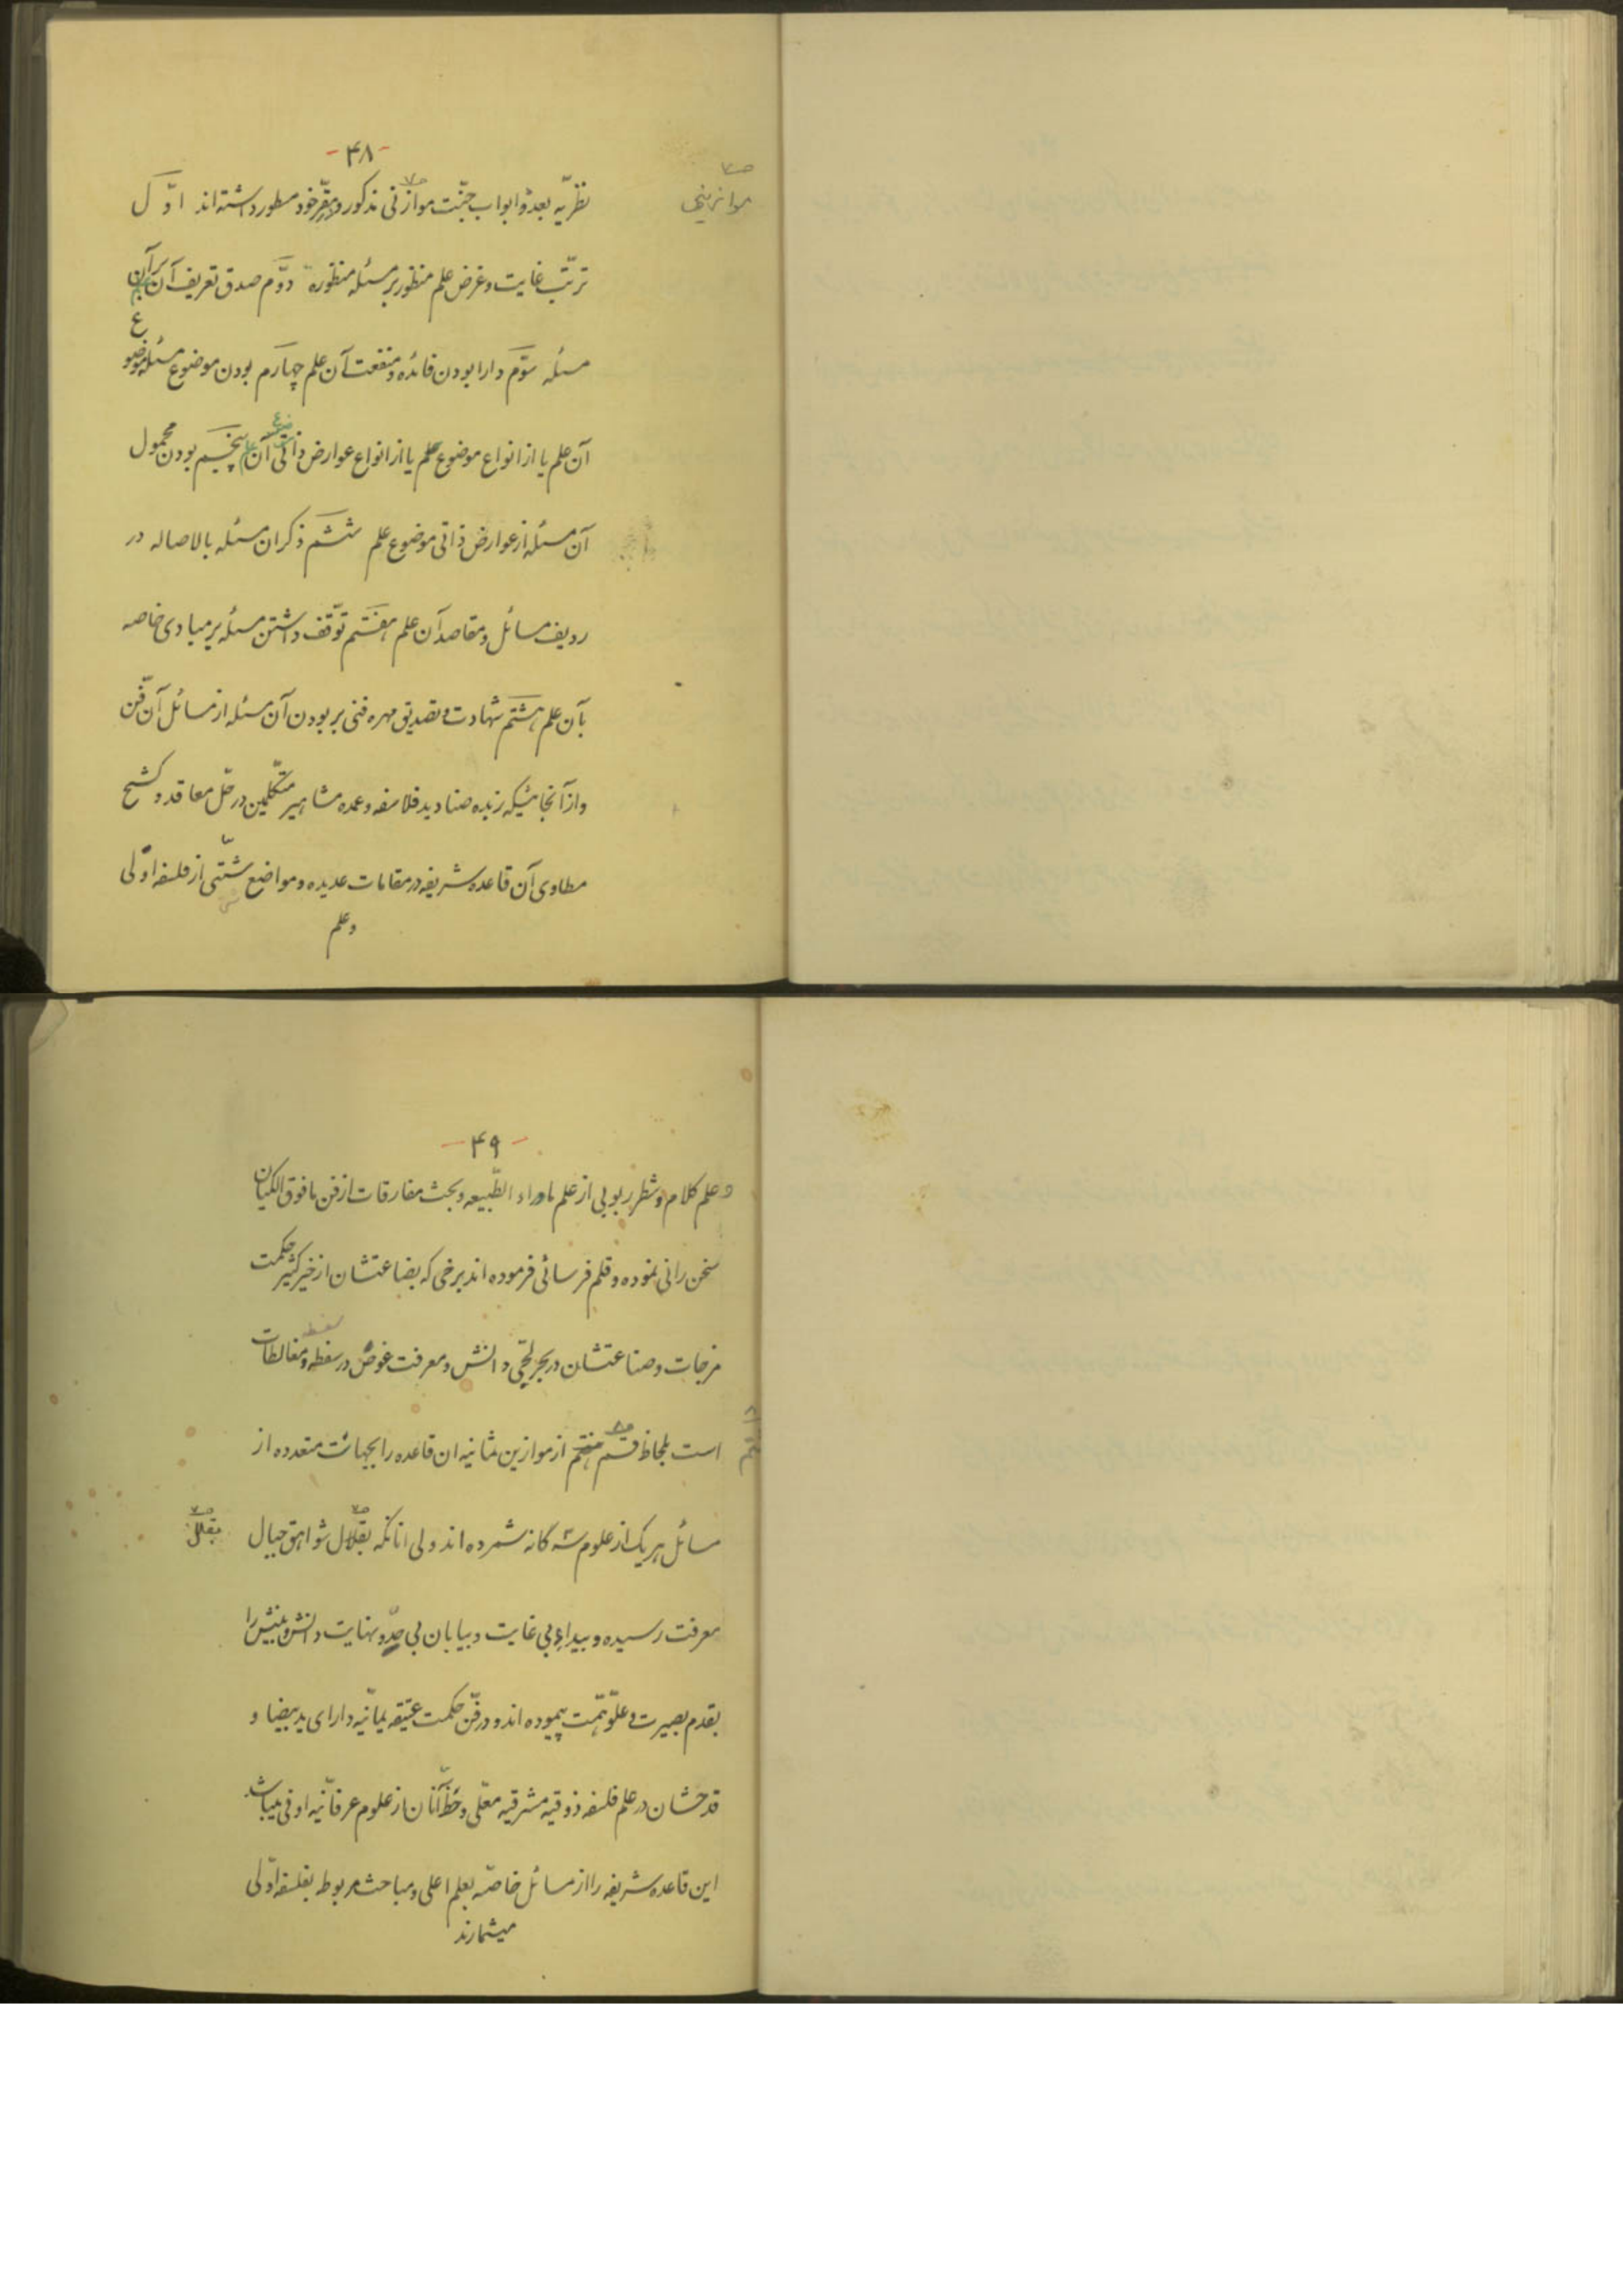 -۴۸-
نظریّه بعدهٔ ابواب جنّت موازنی مذکور و مقرّ خود مسطور داشته‌اند اوّل
موازینی
ترتّب غایت و غرض علم منظور بر مسئله منظوره دوّم صدق تعریف آن بر آن
مسئله سوّم دارا بودن فائده و منفعت آن علم چهارم بودن موضوع مسئله موضوع
آن علم یا از انواع موضوع علم یا از انواع عوارض ذاتی آن پنجم بودن محمول
آن مسئله از عوارض ذاتی موضوع علم ششم ذکر ان مسئله بالاصاله در
ردیف مسائل و مقاصد آن علم هفتم توقّف داشتن مسئله بر مبادی خاصه
بآن علم هشتم شهادت و تصدیق مهره فنی بر بودن آن مسئله از مسائل آن فنّ
و از آنجائیکه زبده صنادید فلاسفه و عمده مشاهیر متکلّمین در حلّ معاقد و کشح
مطاوی آن قاعده شریفه در مقامات عدیده و مواضع شتّی از فلسفه اولی
و علم
-۴۹-
و علم کلام و شطر ربوبی از علم ماوراء الطّبیعه و بحث مفارقات از فن مافوق الکیان
سخن رانی نموده و قلم فرسائی فرموده اند برخی که بضاعتشان از خیر کثیر حکمت
مزجات و صناعتشان در بحر لجّی دانش و معرفت غوص در سفطه و مغالطات
است بلحاظ قسم هفتم از موازین ثمانیه ان قاعده را بجهات متعدده از
مسائل هر یک از علوم سه گانه شمرده اند ولی انانکه بقلال شواهق جبال
بقلل
معرفت رسیده و بیداءِ بی غایت و بیابان بی حدّ و نهایت دانش و بینش را
بقدم بصیرت و علوّ همّت پیموده اند و در فنّ حکمت عتیقه یمانیّه دارای ید بیضا و
قدحشان در علم فلسفه ذوقیه مشرقیه معلّی و حظّ آنان از علوم عرفانیّه اوفی میباشد
این قاعده شریفه را از مسائل خاصّه بعلم اعلی و مباحث مربوط بفلسفه اولی
میشمارند